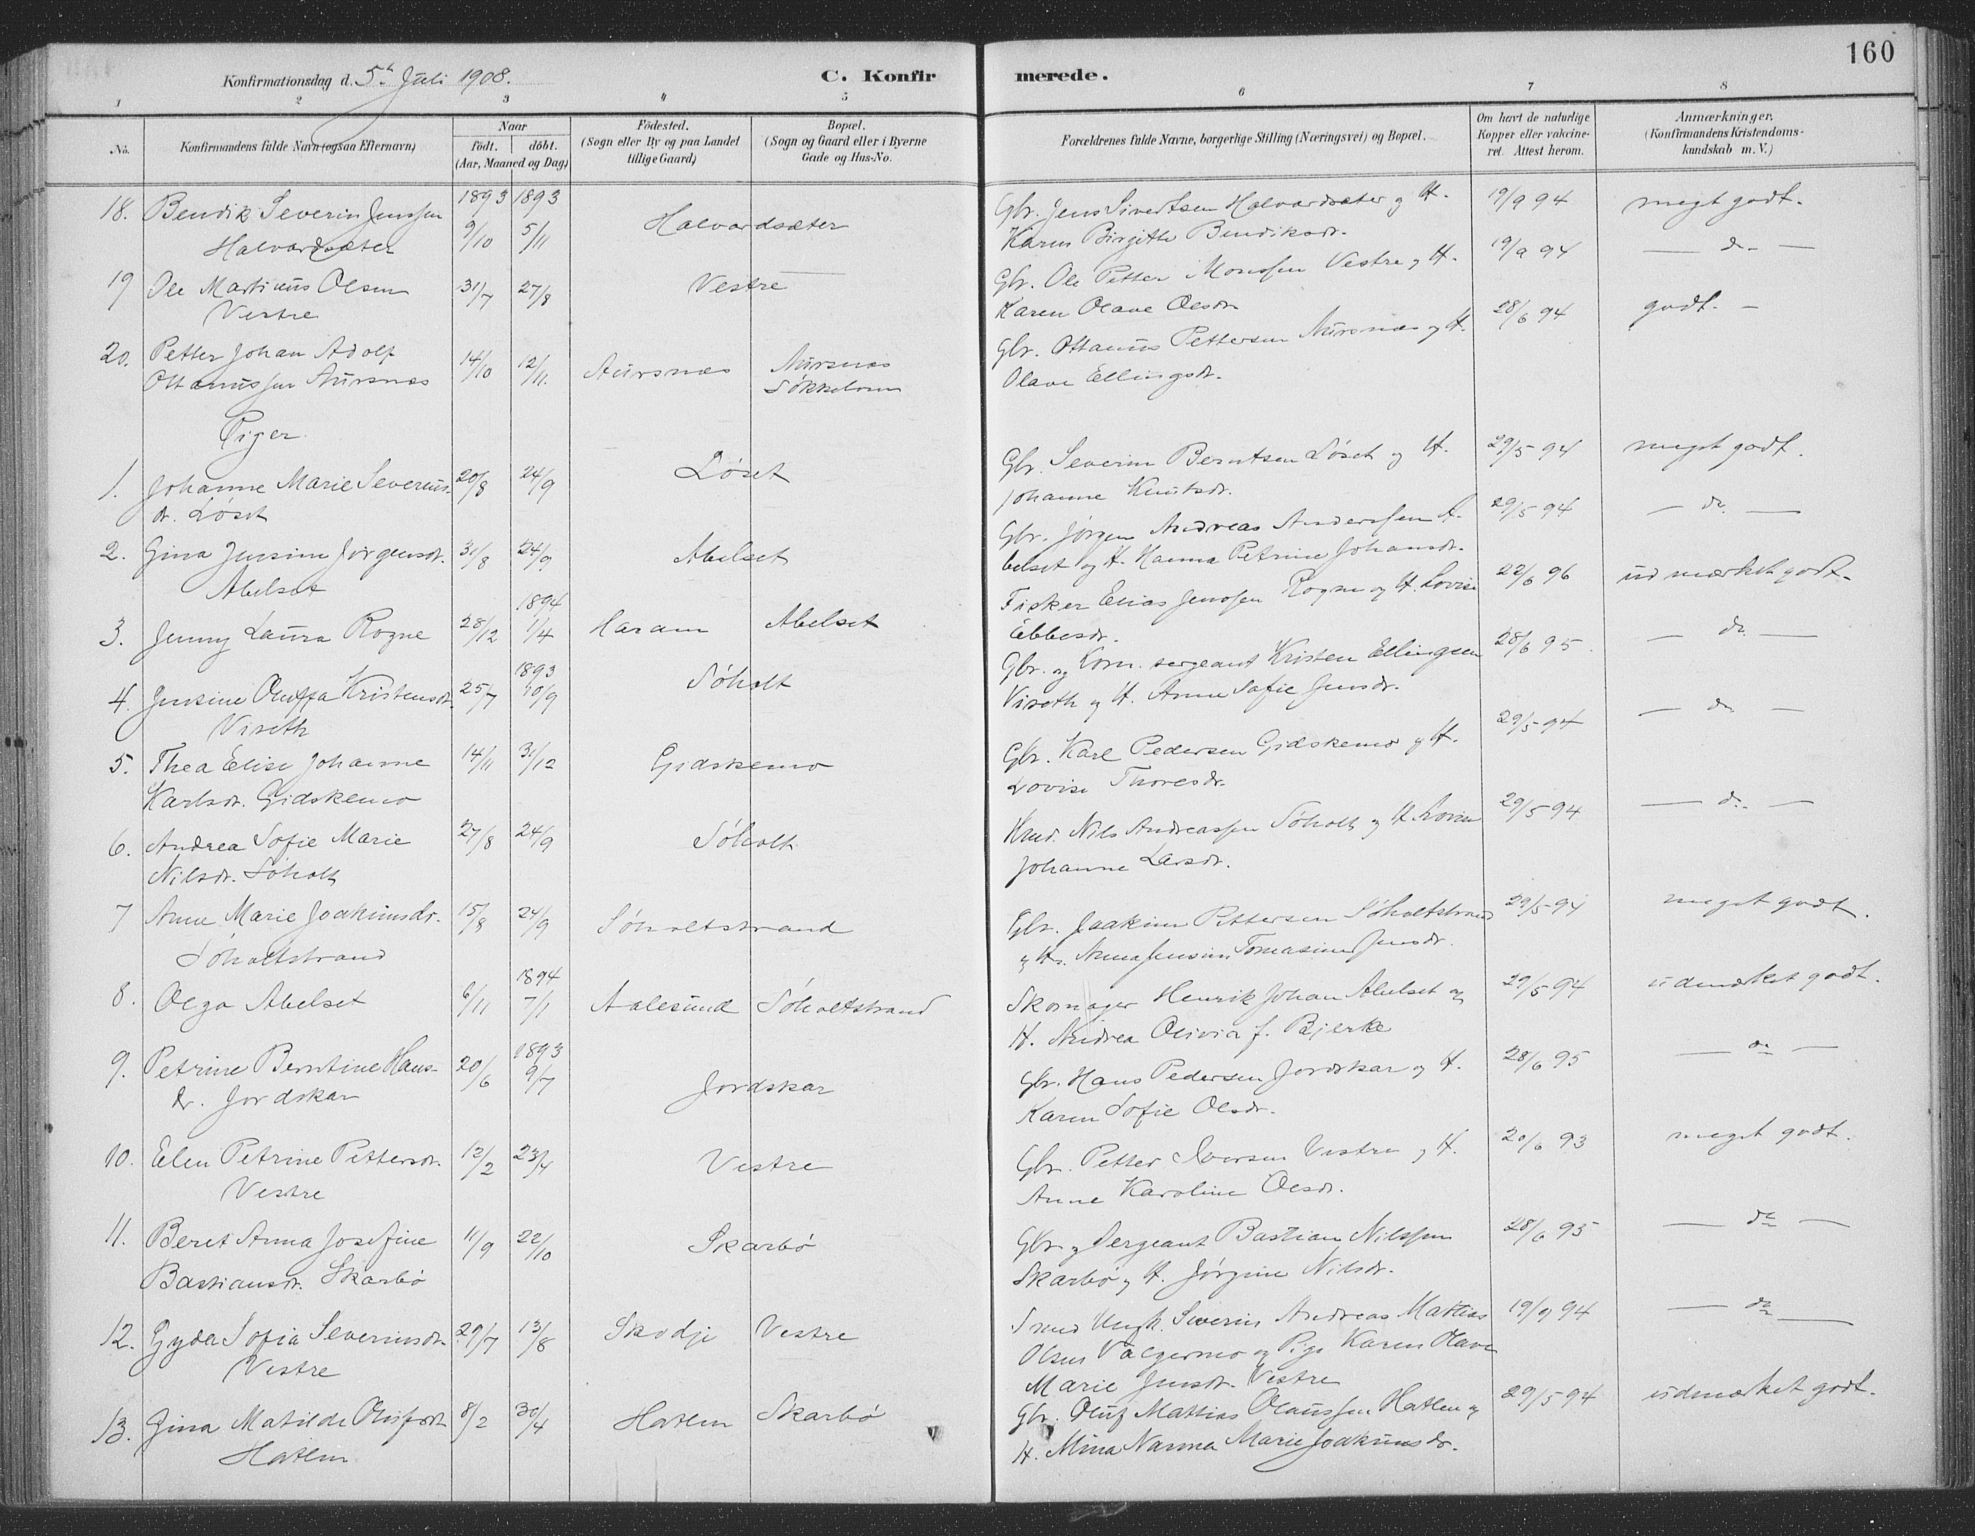 160
Konfirmationsdag d. 5te Juli 1908.
C. Konfirmerede.
1 2 3 4 5 6 7 8
No.
Konfirmandens fulde Navn (ogsaa Efternavn)
Naar
födt. döbt.
(Aar, Maaned og Dag)
Födested.
(Sogn eller By og paa Landet
tillige Gaard)
Bopæl.
(Sogn og Gaard eller i Byerne
Gade og Hus-No.
Forældrenes fulde Navne, borgerlige Stilling (Næringsvei) og Bopæl.
Om havt de naturlige
Kopper eller vakcine-
ret. Attest herom.
Anmærkninger.
(Konfirmandens Kristendoms-
kundskab m. V.)
1893 1893
18. Bendik Severin Jenssen 9/10 5/11 Halvardsæter Gbr. Jens Sivertsen Halvardsæter og H. 19/9 94 meget godt.
Halvardsæter Karen Birgitte Bendiksdr.
19 Ole Martinus Olsen 31/7 27/8 Vestre Gbr. Ole Petter Monssen Vestre og H. 19/9 94 — do —
Vestre Karen Olave Olsdr.
20. Petter Johan Adolf 14/10 12/11. Aursnæs Aursnæs Gbr. Ottanus Pettersen Aursnæs og H. 28/6 94 godt. —
Ottanussen Aursnæs Søkkelven Olave Ellingsdr.
Piger
1. Johanne Marie Severins- 20/8 24/9 Løset Gbr. Severin Berntsen Løset og H. 29/5 94 meget godt.
dr. Løset Johanne Knutsdr.
2. Gina Jensine Jørgensdr. 31/8 24/9 Abelset Gbr. Jørgen Andreas Anderssen A- 29/5 94 — do —
Abelset belset og H. Hanna Petrine Johansdr.
1894
3. Jenny Laura Rogne 28/12 1/4 Haram Abelset Fisker Elias Jenssen Rogne og H. Lovise 22/6 96 udmærket godt.
Ebbesdr.
1893
4. Jensine Oluffa Kristensdr. 25/7 10/9 Søholt Gbr. og Korn. sergeant Kristen Ellingsen 28/6 95. — do —
Viseth Viseth og H. Anne Sofie Jensdr.
5. Thea Elise Johanne 14/11 31/12 Gidskemo Gbr. Karl Pedersen Gidskemo og H. 29/5 94 — do —
Karlsdr. Gidskemo Lovise Thoresdr.
6. Andrea Sofie Marie 27/8 24/9 Søholt Nils Andreassen Søholt og H. Lovise 29/5 94 — do —
Nilsdr. Søholt Johanne Larsdr.
7 Anne Marie Joakimsdr. 15/8 24/9 Søholtstrand Gbr. Joakim Pettersen Søholtstrand 29/5 94 meget godt.
Søholtstrand og H. Anna Jensine Tomasine Jensdr.
1894
8. Olga Abelset 6/11 7/1 Aalesund Søholtstrand Skomager Henrik Johan Abelset og 29/5 94 udmærket godt.
H. Andrea Olivia f. Bjerke
1893
9. Petrine Berntine Hans- 20/6 9/7 Jordskar Gbr. Hans Pedersen Jordskar og H. 28/6 95 — do —
dr. Jordskar Karen Sofie Olsdr.
10. Elen Petrine Pettersdr. 12/2 23/4 Vestre Gbr. Petter Iversen Vestre og H. 20/6 93 meget godt.
Vestre Anne Karoline Olsdr.
11. Beret Anna Josefine 11/9 22/10 Skarbø Gbr. og Sergeant Bastian Nilssen 28/6 95 — do —
Bastiansdr. Skarbø Skarbø og H. Jørgine Nilsdr.
12. Gyda Sofia Severinsdr. 29/7 13/8 Skodje Vestre Smed Ungk. Severin Andreas Mattias 19/9 94 — do —
Vestre Olsen Valgermo og Pige Karen Olave
Marie Jensdr. Vestre
13. Gina Matilde Olufsdr. 8/2 30/4 Hatlen Skarbø Gbr. Oluf Mattias Olaussen Hatlen og 29/5 94 udmærket godt.
Hatlen H. Mina Nanna Marie Joakimsdr.